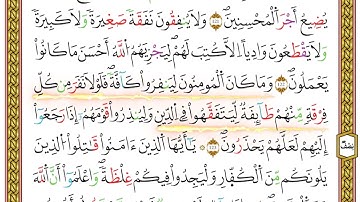 يُضِيعُ أَجْرَ ٱلْمُحْسِنِينَ ١٢٠ وَلَا يُنفِقُونَ نَفَقَةً صَغِيرَةً وَلَا كَبِيرَةً
وَلَا يَقْطَعُونَ وَادِيًا إِلَّا كُتِبَ لَهُمْ لِيَجْزِيَهُمُ ٱللَّهُ أَحْسَنَ مَا كَانُوا۟
يَعْمَلُونَ ١٢١ وَمَا كَانَ ٱلْمُؤْمِنُونَ لِيَنفِرُوا۟ كَآفَّةً فَلَوْلَا نَفَرَ مِن كُلِّ
فِرْقَةٍ مِّنْهُمْ طَآئِفَةٌ لِّيَتَفَقَّهُوا۟ فِى ٱلدِّينِ وَلِيُنذِرُوا۟ قَوْمَهُمْ إِذَا رَجَعُوٓا۟
إِلَيْهِمْ لَعَلَّهُمْ يَحْذَرُونَ ١٢٢ يَٰٓأَيُّهَا ٱلَّذِينَ ءَامَنُوا۟ قَٰتِلُوا۟ ٱلَّذِينَ
يَلُونَكُم مِّنَ ٱلْكُفَّارِ وَلْيَجِدُوا۟ فِيكُمْ غِلْظَةً وَٱعْلَمُوٓا۟ أَنَّ ٱللَّهَ